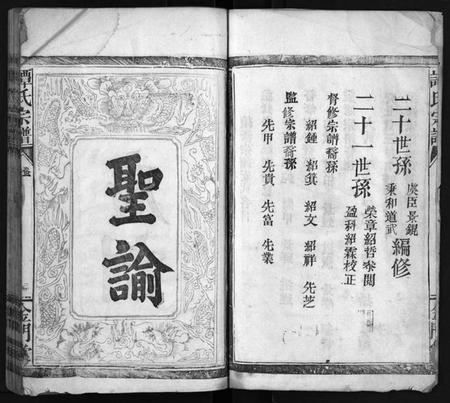 二十世孫
虞臣 景錕
秉和 道武
編修
二十一世孫
榮章 紹哲 叅閱
盈科 紹霖 校正
督修宗譜裔孫
紹鍾 紹箕 紹文 紹祥 先芝
監修宗譜裔孫
先甲 先貴 先富 先業
聖諭
譚氏宗譜
金門堂